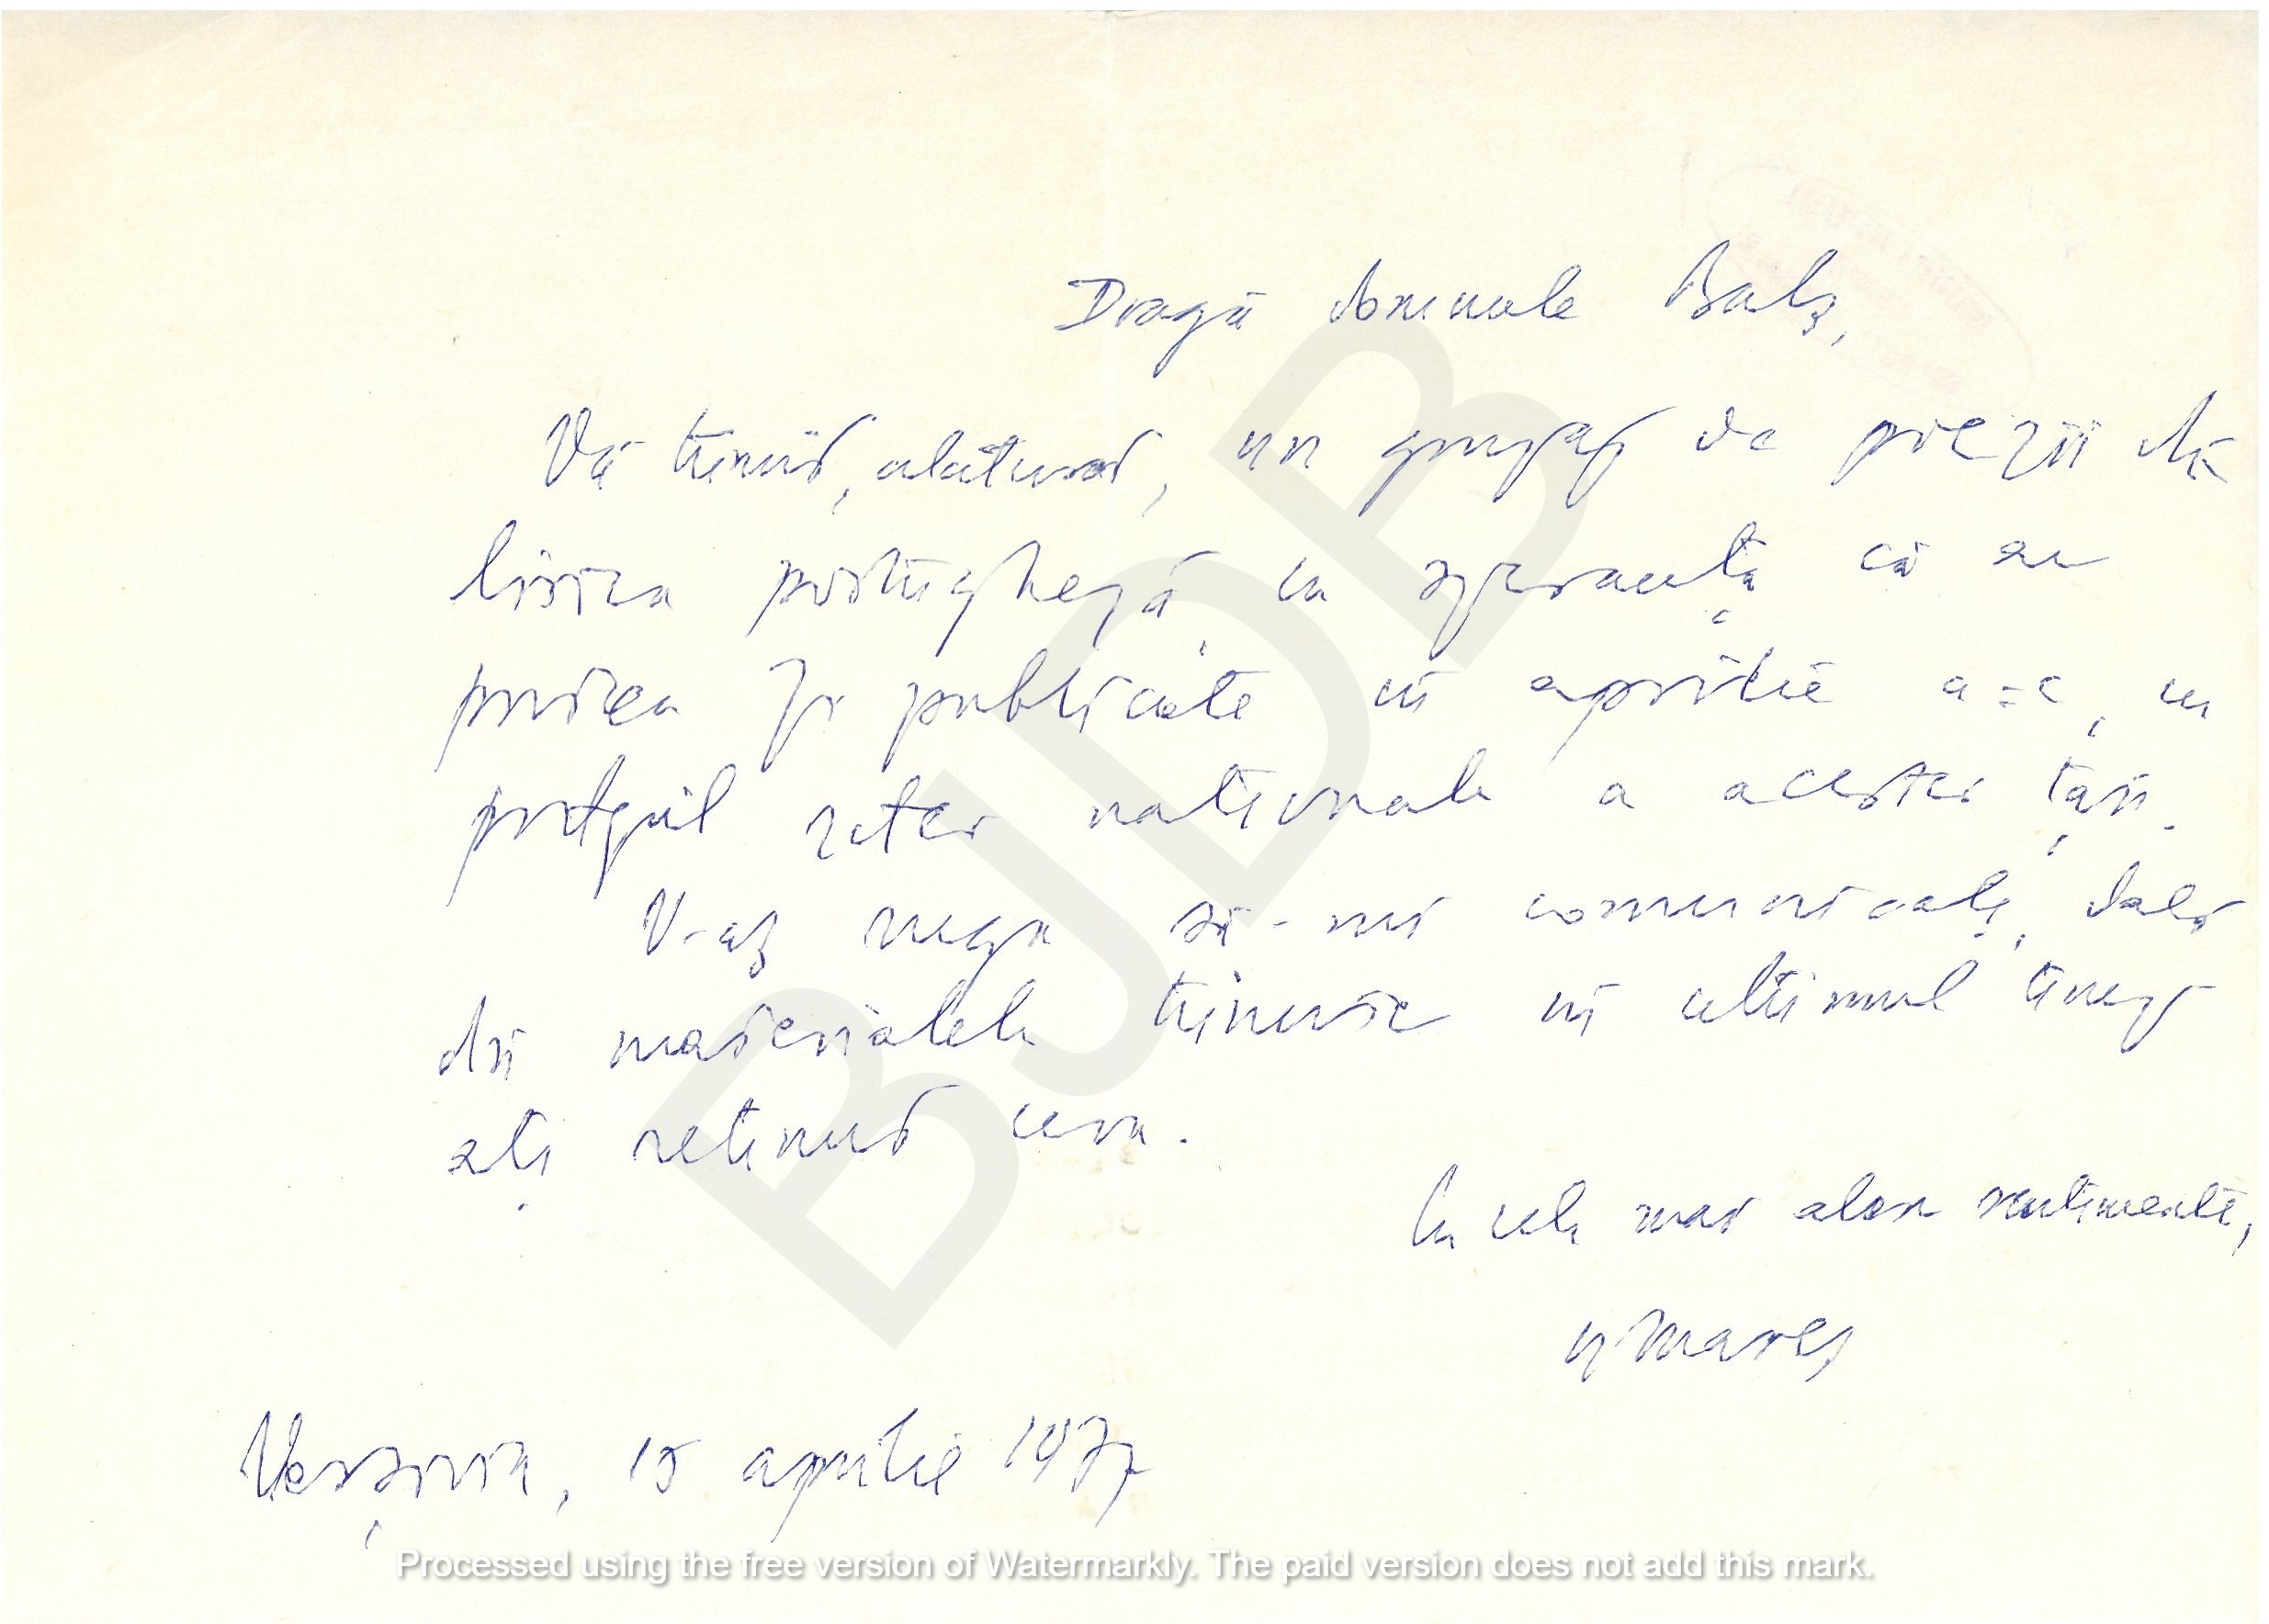 Dragă domnule Balș,
Vă trimit, alăturat, un grupaj de poezii din
lirica portugheză, cu speranța că ar
putea fi publicate în aprilie a.c., cu
prilejul zilei naționale a acestei țări.
V-aș ruga să-mi comunicați, dacă
din materialele trimise în ultimul timp
ați reținut ceva.
Cu cele mai alese sentimente,
Mareș
Varșovia, 15 aprilie 1977
BJDB
Processed using the free version of Watermarkly. The paid version does not add this mark.